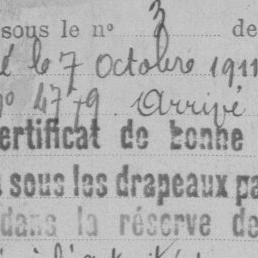 sous le n° 3 de
é le 7 Octobre 1911
n° 4779. Arrivé
ertificat de bonne
sous les drapeaux pa
dans la réserve de